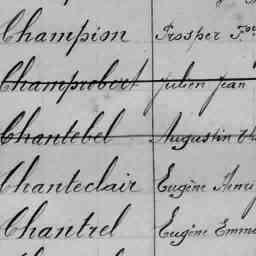 Champion Prosper
Champrobert Julien Jean
Chantebel Augustin
Chanteclair Eugène Henri
Chantrel Eugène